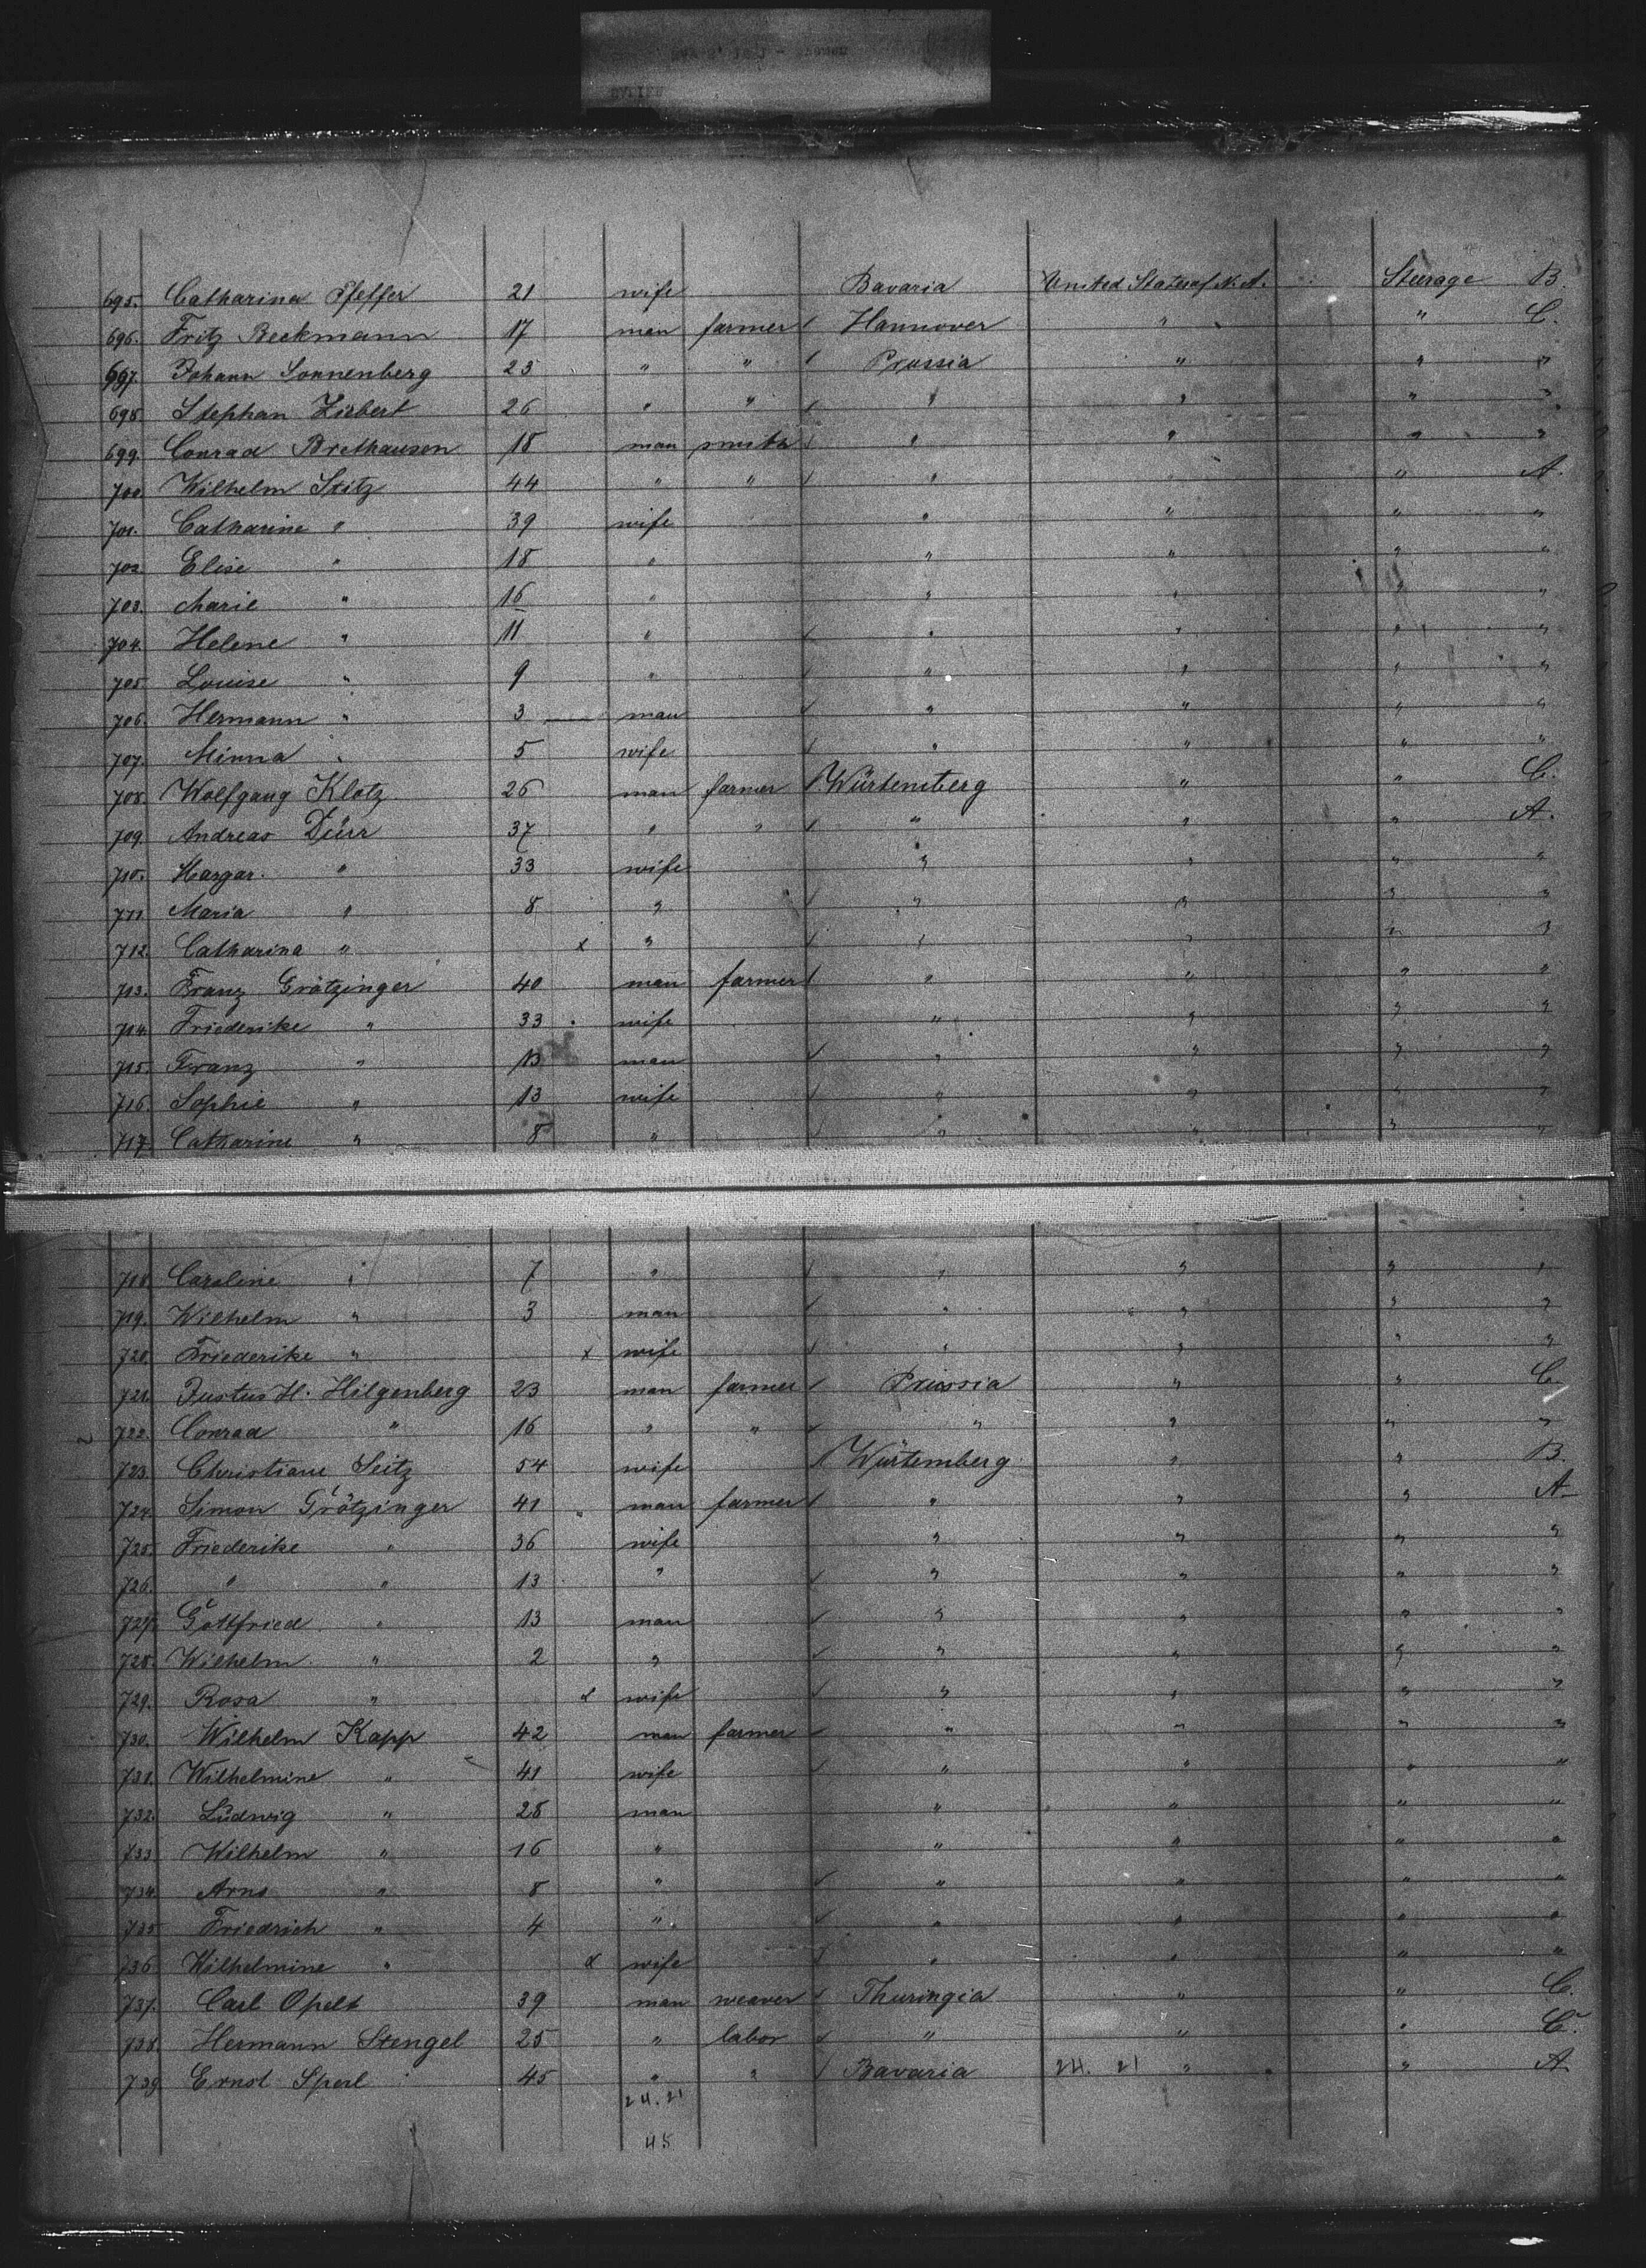 695. Catharina Pfeffer 21 wife Bavaria United States of N. A. Steerage B.
696. Fritz Beckmann 17 man farmer Hannover " " C.
697. Johann Sonnenberg 25 " " Prussia " " "
698. Stephan Ziebert 26 " " " " " "
699. Conrad Brethausen 18 man smith " " " "
700 Wilhelm Stitz 44 " " " " A.
701. Catharine " 39 wife " " " "
702 Elise " 18 " " " " "
703. Marie " 16 " " " " "
704. Helene " 11 " " " " "
705 Louise " 9 " " " " "
706. Hermann " 3 man " " " "
707. Minna " 5 wife " " " "
708. Wolfgang Klotz 26 man farmer Würtemberg " " C.
709. Andreas Dürr 37 " " " " " A.
710. Margar. " 33 wife " " " "
711 Maria " 8 " " " " "
712. Catharina " x " " " " "
713. Franz Grötzinger 40 man farmer " " " "
714. Friederike " 33 wife " " " "
715. Franz " 13 man " " " "
716. Sophie " 13 wife " " " "
717. Catharine " 8 " " " " "
718. Caroline " 7 " " " " "
719. Wilhelm " 3 man " " " "
720. Friederike " x wife " " " "
721. Justus H. Hilgenberg 23 man farmer Prussia " " C
722. Conrad " 16 " " " " " "
723. Christiane Seitz 54 wife Würtemberg " " B.
724. Simon Grötzinger 41 man farmer " " " A
725. Friederike " 36 wife " " " "
726. " " 13 " " " " "
727. Gottfried " 13 man " " " "
728. Wilhelm " 2 " " " " "
729. Rosa " x wife " " " "
730. Wilhelm Kapp 42 man farmer " " " "
731. Wilhelmine " 41 wife " " " "
732. Ludwig " 28 man " " " "
733. Wilhelm " 16 " " " " "
734. Arno " 8 " " " " "
735 Friedrich " 4 " " " " "
736 Wilhelmine " x wife " " " "
737. Carl Opelt 39 man weaver Thuringia " " C.
738. Hermann Stengel 25 " labor " " " C.
739. Ernst Sperl 45 " " Bavaria 24. 21 " " A
24. 21
45